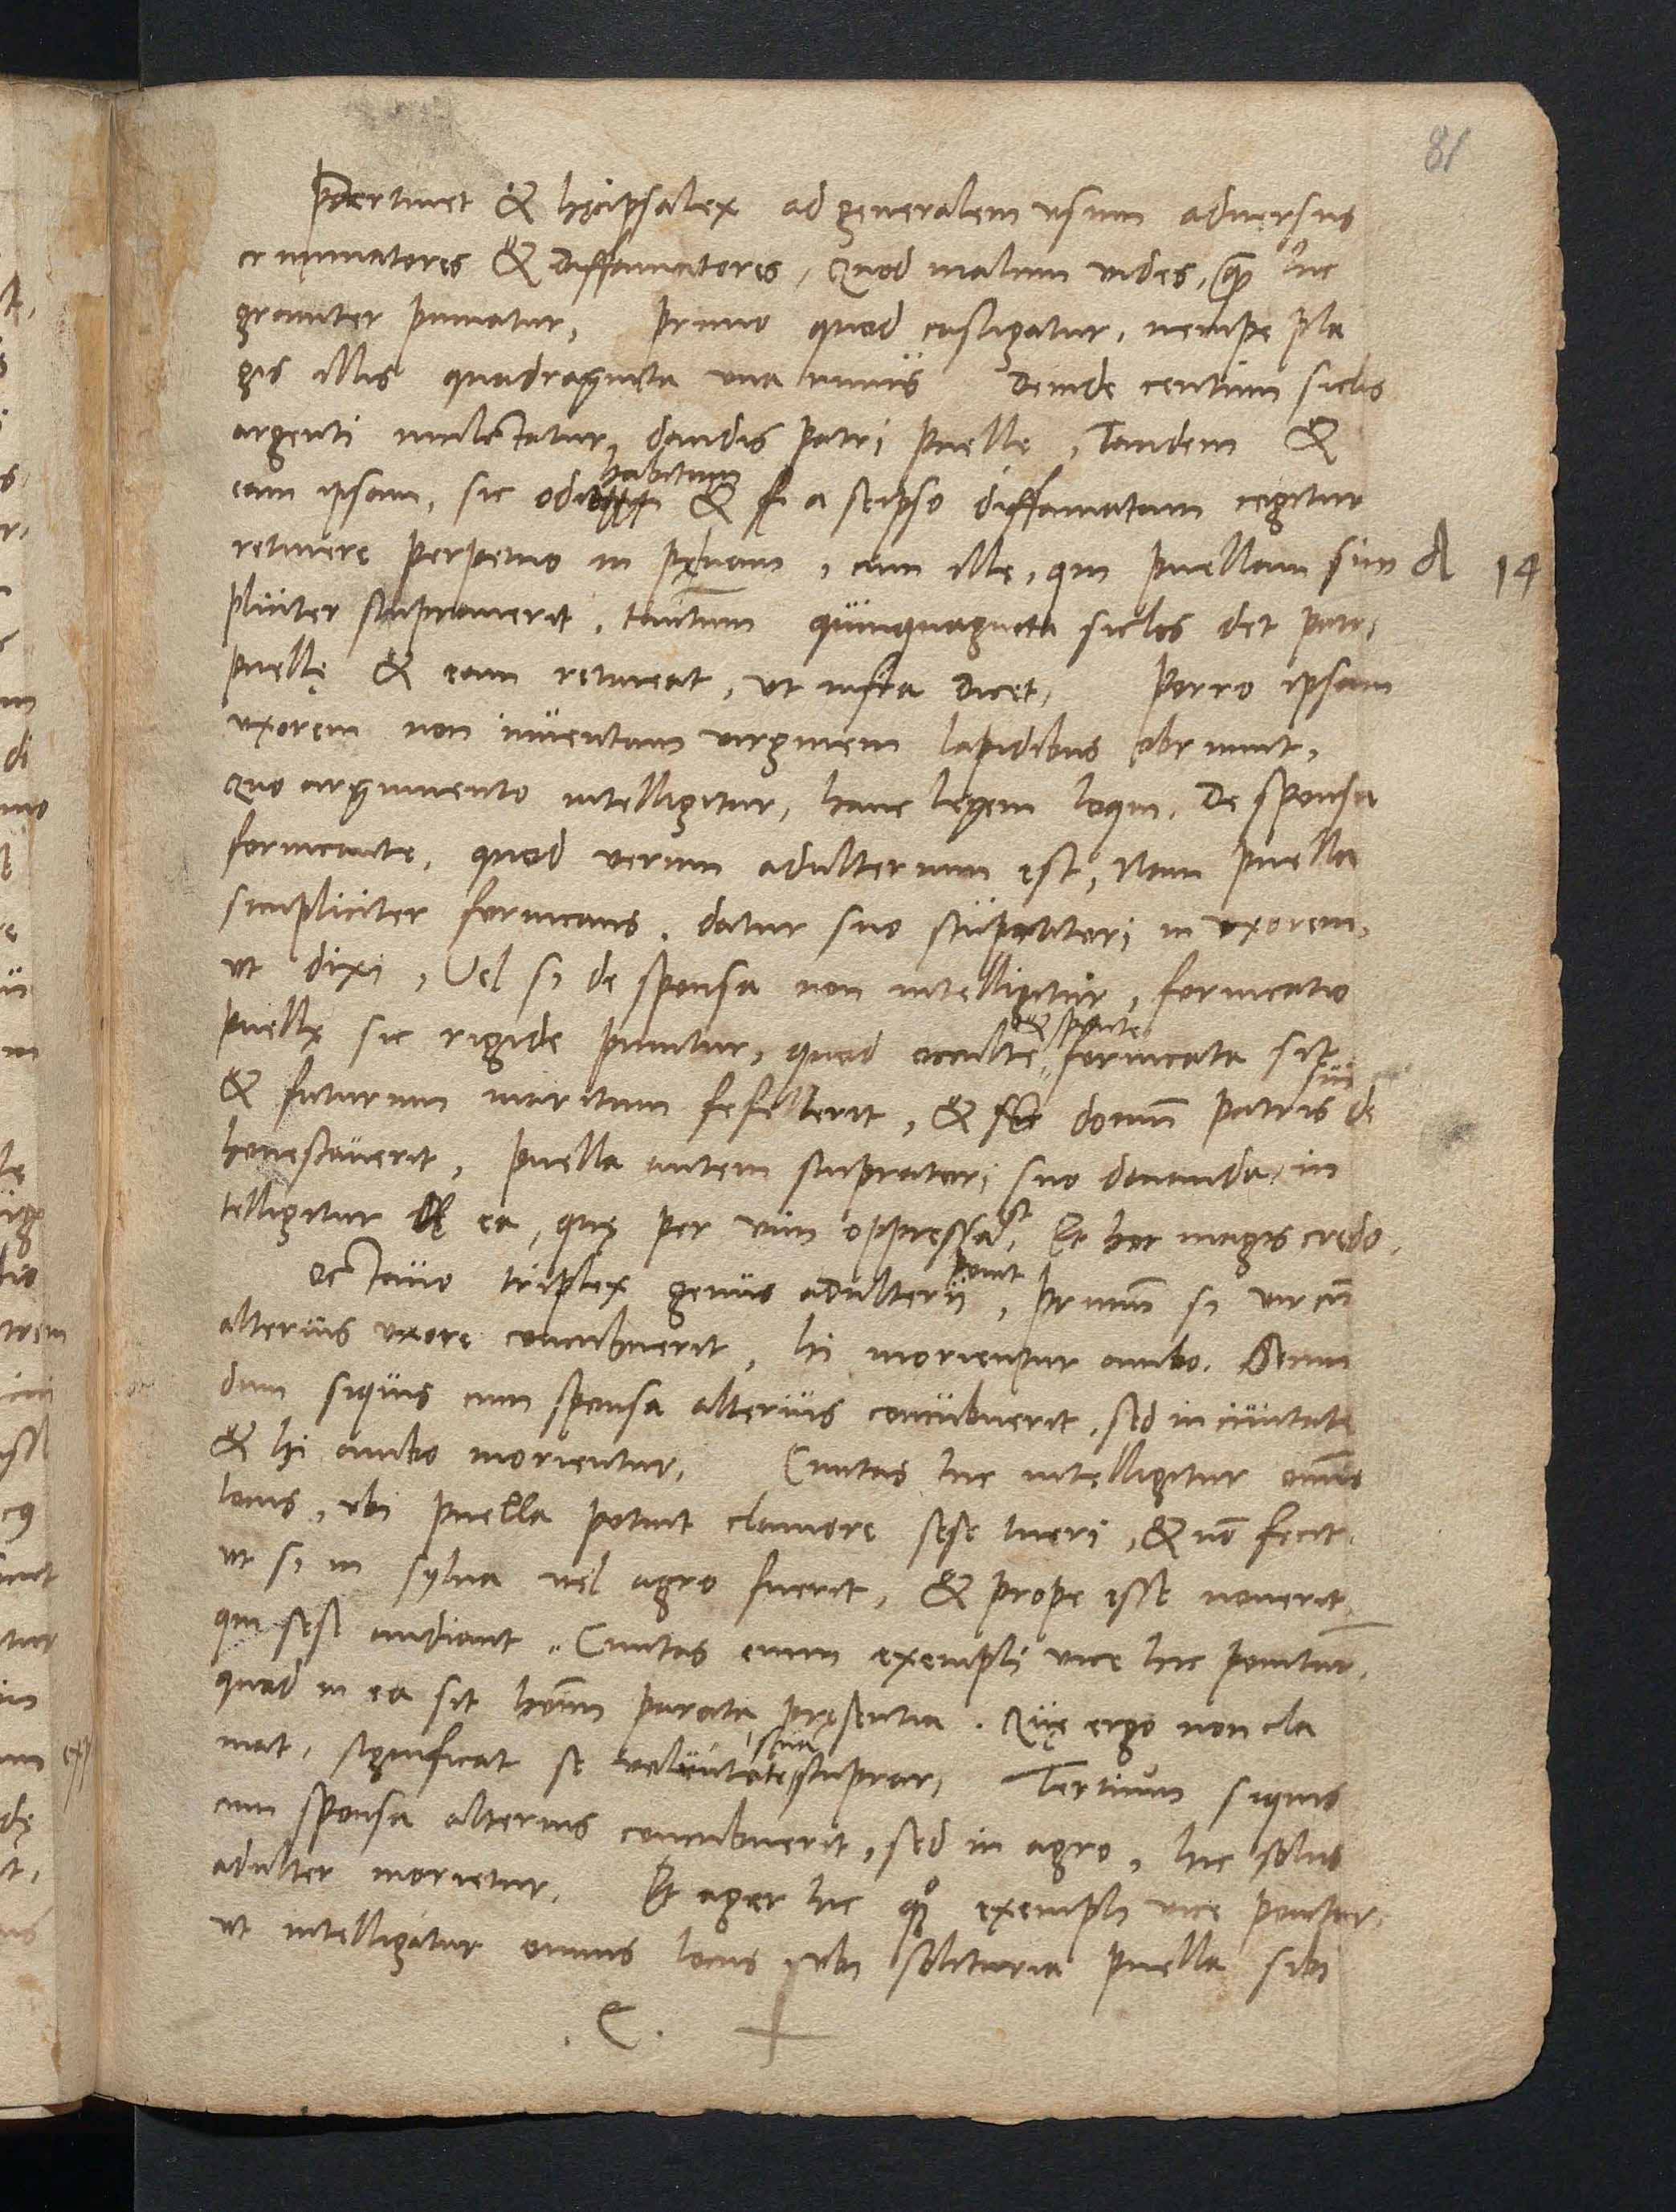 81
Pertinet & hęc ipsa lex ad generalem usum adversus
criminatores & diffamatores, Quod malum vides, quam hic
graviter puniatur, Primo quod castigatur, nempe pla
gis illis quadraginta una minus Deinde centum siclis
argenti mulctatur, dandis patri puelle, Tandem &
eam ipsam, sic odio habitam & a seipso diffamatam cogitur
retinere perpetuo in pęnam, cum ille, qui puellam sim A 14
pliciter stupraverit, tantum quinquaginta siclos det patri
puellę & eam retineat, ut infra dicet, Porro ipsam
uxorem non inventam virginem lapidibus obruunt,
Quo argumento intelligitur, hanc legem loqui, De sponsa
fornicante, quod verum adulterium est, Nam puella
simpliciter fornicans, datur suo stupratori in uxorem,
ut dixi, Vel si de sponsa non intelligitur, fornicatio
puellę sic rigide punitur, quod occulte & sponte fornicata sit
& futurum maritum fefellerit, & domum patris sui de
honestaverit, Puella autem stupratori suo donanda in
telligitur ea, quę per vim oppressa est, Et hoc magis credo.
Octavo triplex genus adulterii ponit, Primum si vir cum
alterius uxore concubuerit, hi morientur ambo. Secun
dum siquis cum sponsa alterius concubuerit, sed in civitate
& hi ambo morientur, Civitas hic intelligitur omnis
locus, ubi puella potuit clamore sese tueri, & non fecit.
ut si in sylva vel agro fuerit, & prope esse noverit
qui sese audiant, Civitas enim exempli vice hic ponitur,
quod in ea sit hominum parata pręsentia. Quę ergo non cla
mat, significat se voluntate sua stuprari, Tertium siquis
cum sponsa alterius concubuerit, sed in agro, hic solus
adulter morietur. Et ager hic quoque exempli vice ponitur,
ut intelligatur omnis locus, ubi solitaria puella sibi
. C . +